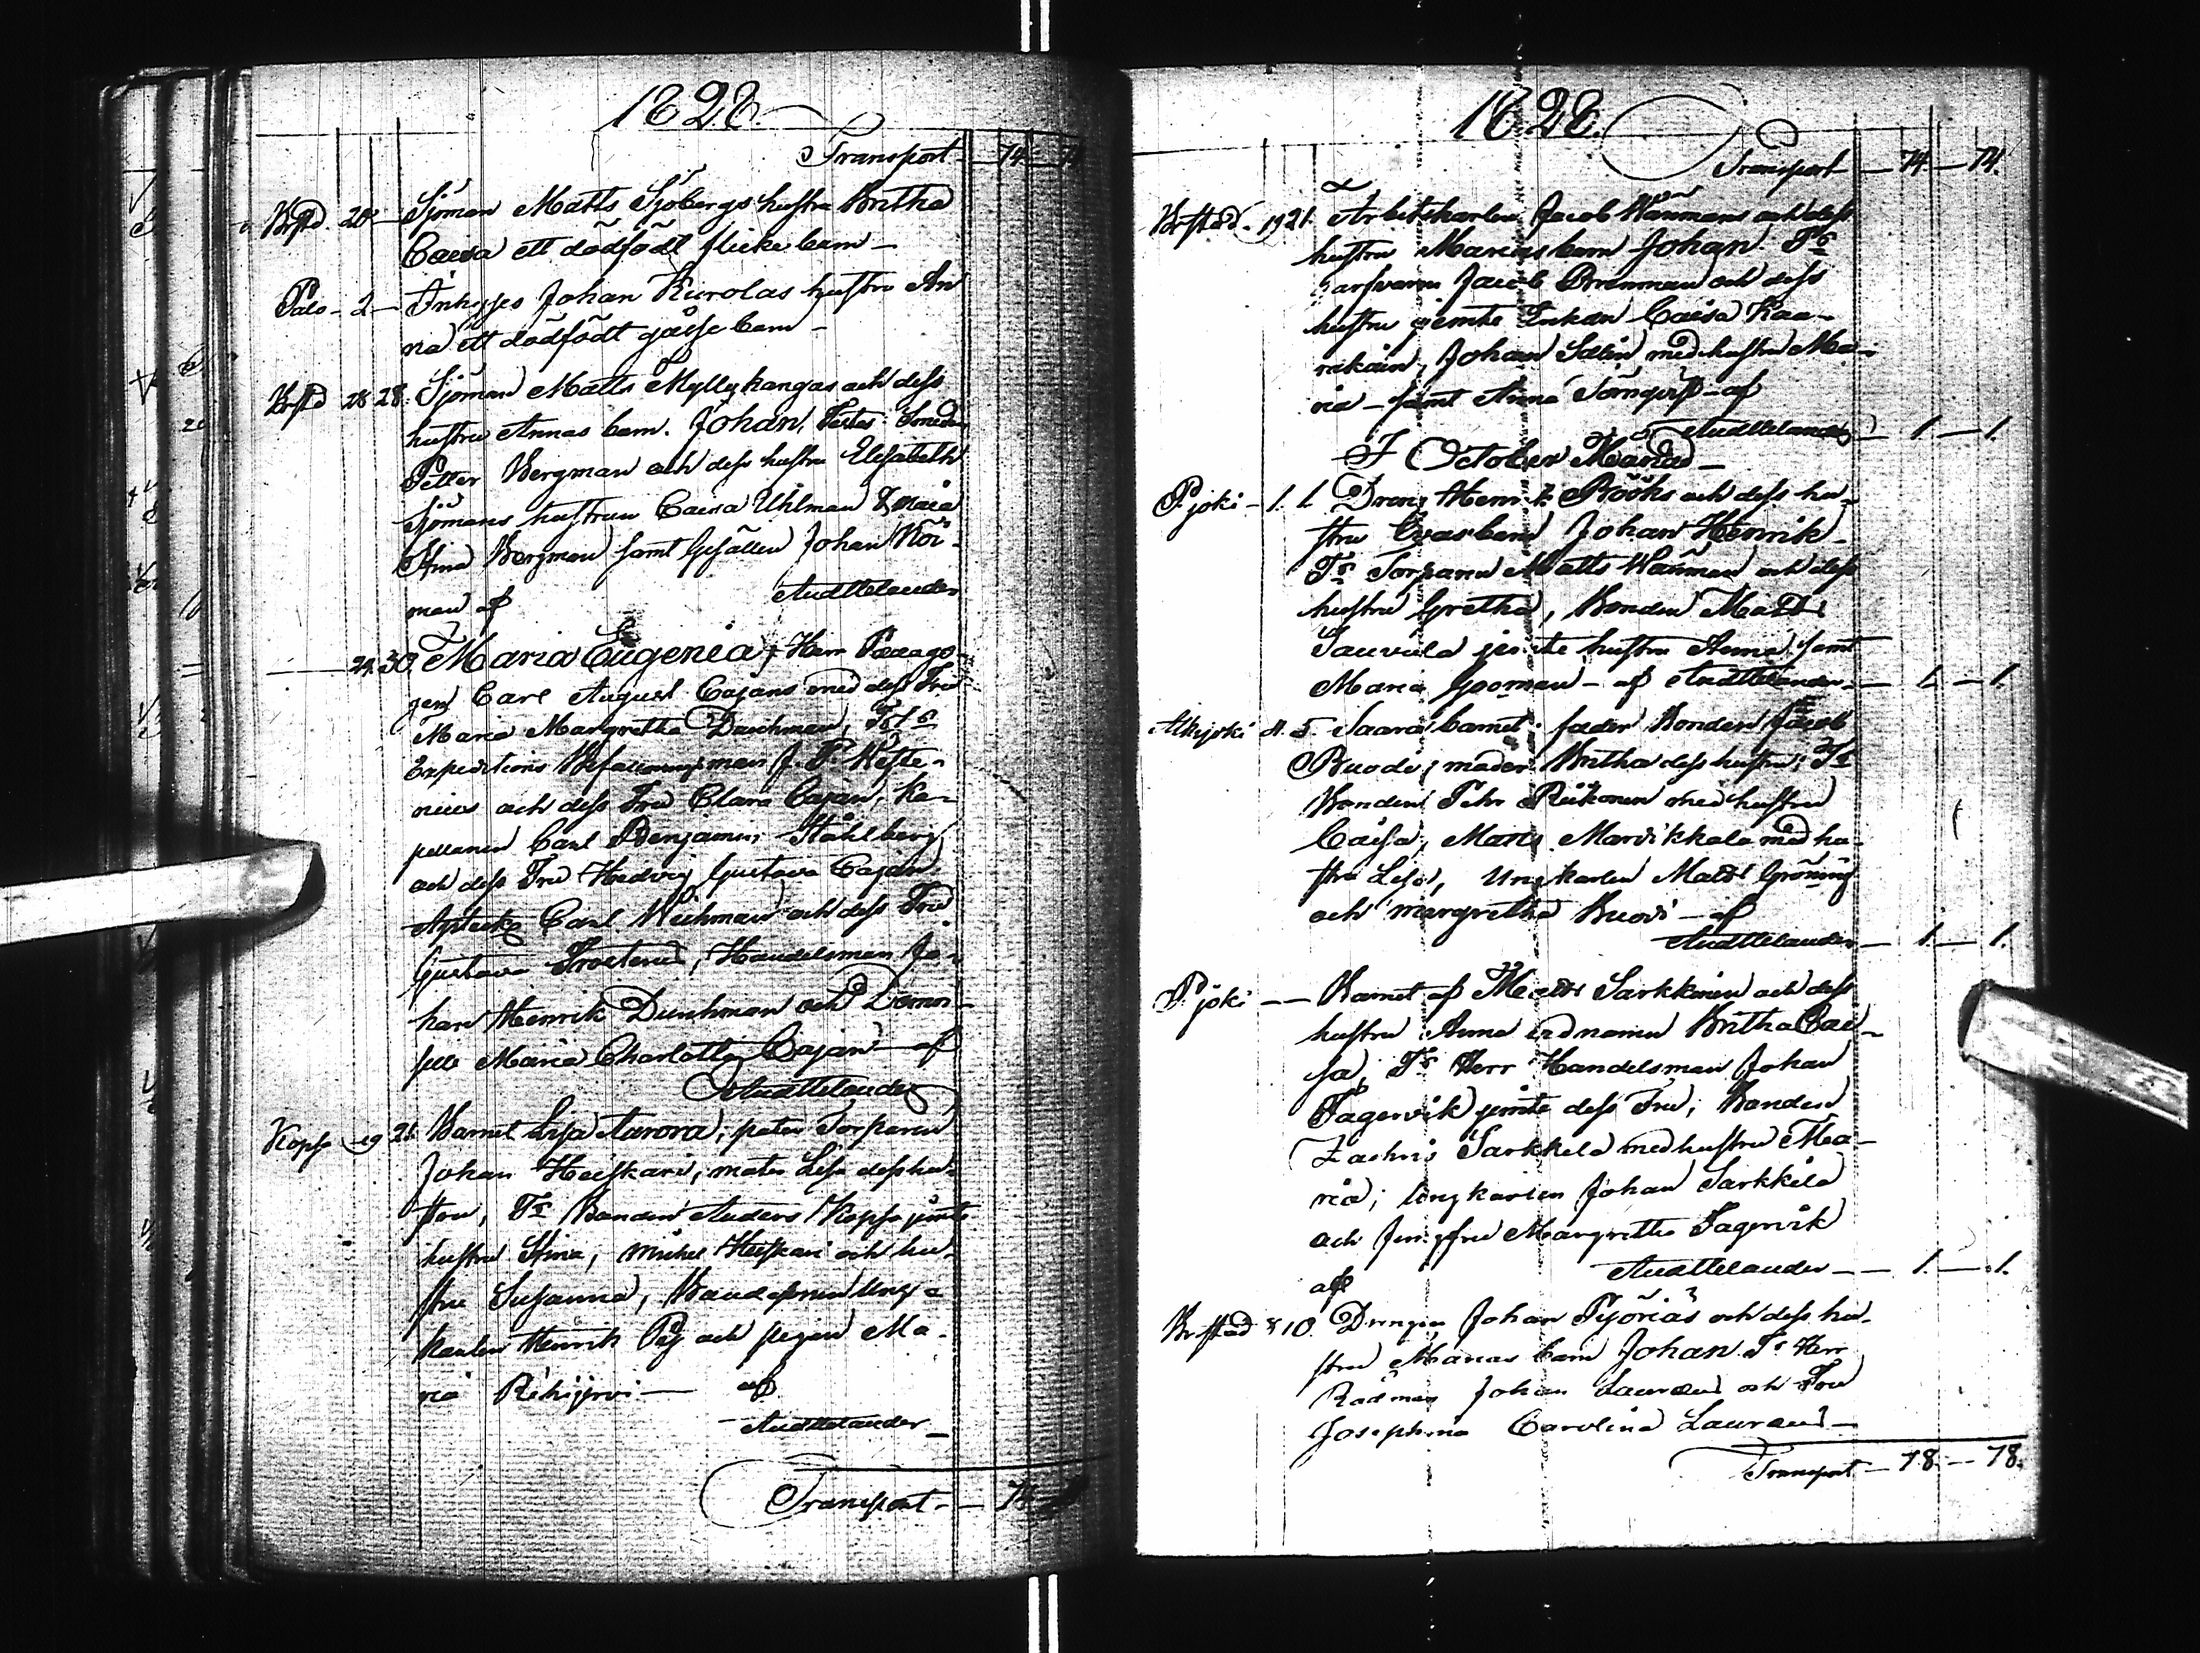 1828
Transport — 74 —
Brstd. 20 — Sjöman Matts Sjöbergs hustru Britha
Caisa ett dödfödt flicke barn —
Palo — 2 — Inhyses Johan Kurolas hustru An
na ett dödfödt gåsse barn —
Brstd 28 28. Sjöman Matts Myllykangas och dess
hustru Annas barn. Johan. Testes: Smeden
Petter Bergman och dess hustru Elisabeth
Sjömans hustrun Caisa Uhlman
Stina Bergman samt Gesällen Johan Köi-
man af Andttelander
24. 30. Maria Eugenia, Herr Pædago-
gen Carl August Cajans med dess Fru
Maria Margretha Durchman,
Expeditions Befallningsman J. P. Weste-
nius och dess Fru Clara Cajan, Ka-
pellanen Carl Benjamin Ståhlberg
och dess Fru Hedvig Gustava Cajan
Carl Wichman och dess Fru
Gustava Frosterus, Handelsman Jo-
han Henrik Durchman och Demoi-
selle Maria Charlotta Cajan — af
Andttelander
Kopsa 19 21. Barnet Lisa Aurora, pater Torparen
Johan Heiskari, mater Lisa dess hu-
stru, Ts Bonden Anders Kopsa jemte
hustru Stina, Michel Heiskari och hu-
stru Susanna, Ung-
karlen Henrik och pigan Ma-
ria — af
Andttelander —
Transport — 74

1828.
Transport — 74 — 74.
Brstad. 19 21. Arbetskarlen Jacob Wänmans och dess
hustru Marias barn Johan Ts
Garfvaren Jacob Brenman och dess
hustru jemte Enkan Caisa Kaa-
rakain, Johan Salin med hustru Ma-
ria — samt Anna Törnqvist — af
Andttelander — 1 — 1.
I October Månad —
P.joki — 1. 1. Dreng Henrik Rööks och dess hu-
stru Evas barn Johan Henrik
Ts Torparen Matts Wänman och dess
hustru Gretha, Bonden Matts
Sauvula jemte hustru Anna samt
Maria — af Andttelander — 1. — 1.
4. 5. Saara barnet: fader Bonden Jacob
Ruodi; moder Britha dess hustru; Ts
Bonden Pehr Reikonen med hustru
Caisa, Matts Mardikkala med hu-
stru Lisa, Ungkarlen Matts Gröning
och Margretha — af
Andttelander — 1. — 1.
P.joki — — Barnet af Matts Sarkkinen och dess
hustru Anna vid namn Britha Cai-
sa, Ts Herr Handelsman Johan
Fagervik jemte dess Fru, Bonden
Zachris Sarkkela med hustru Ma-
ria; Ungkarlen Johan Sarkkila
och Jungfru Margretha Fagervik
af Andttelander — 1. — 1.
Brstad 8 10. Drengen Johan Pyörias och dess hu-
stru Marias barn Johan. Ts Herr
Rådman Johan Lauræus och Fru
Josephina Carolina Lauræus —
Transport — 78. — 78.